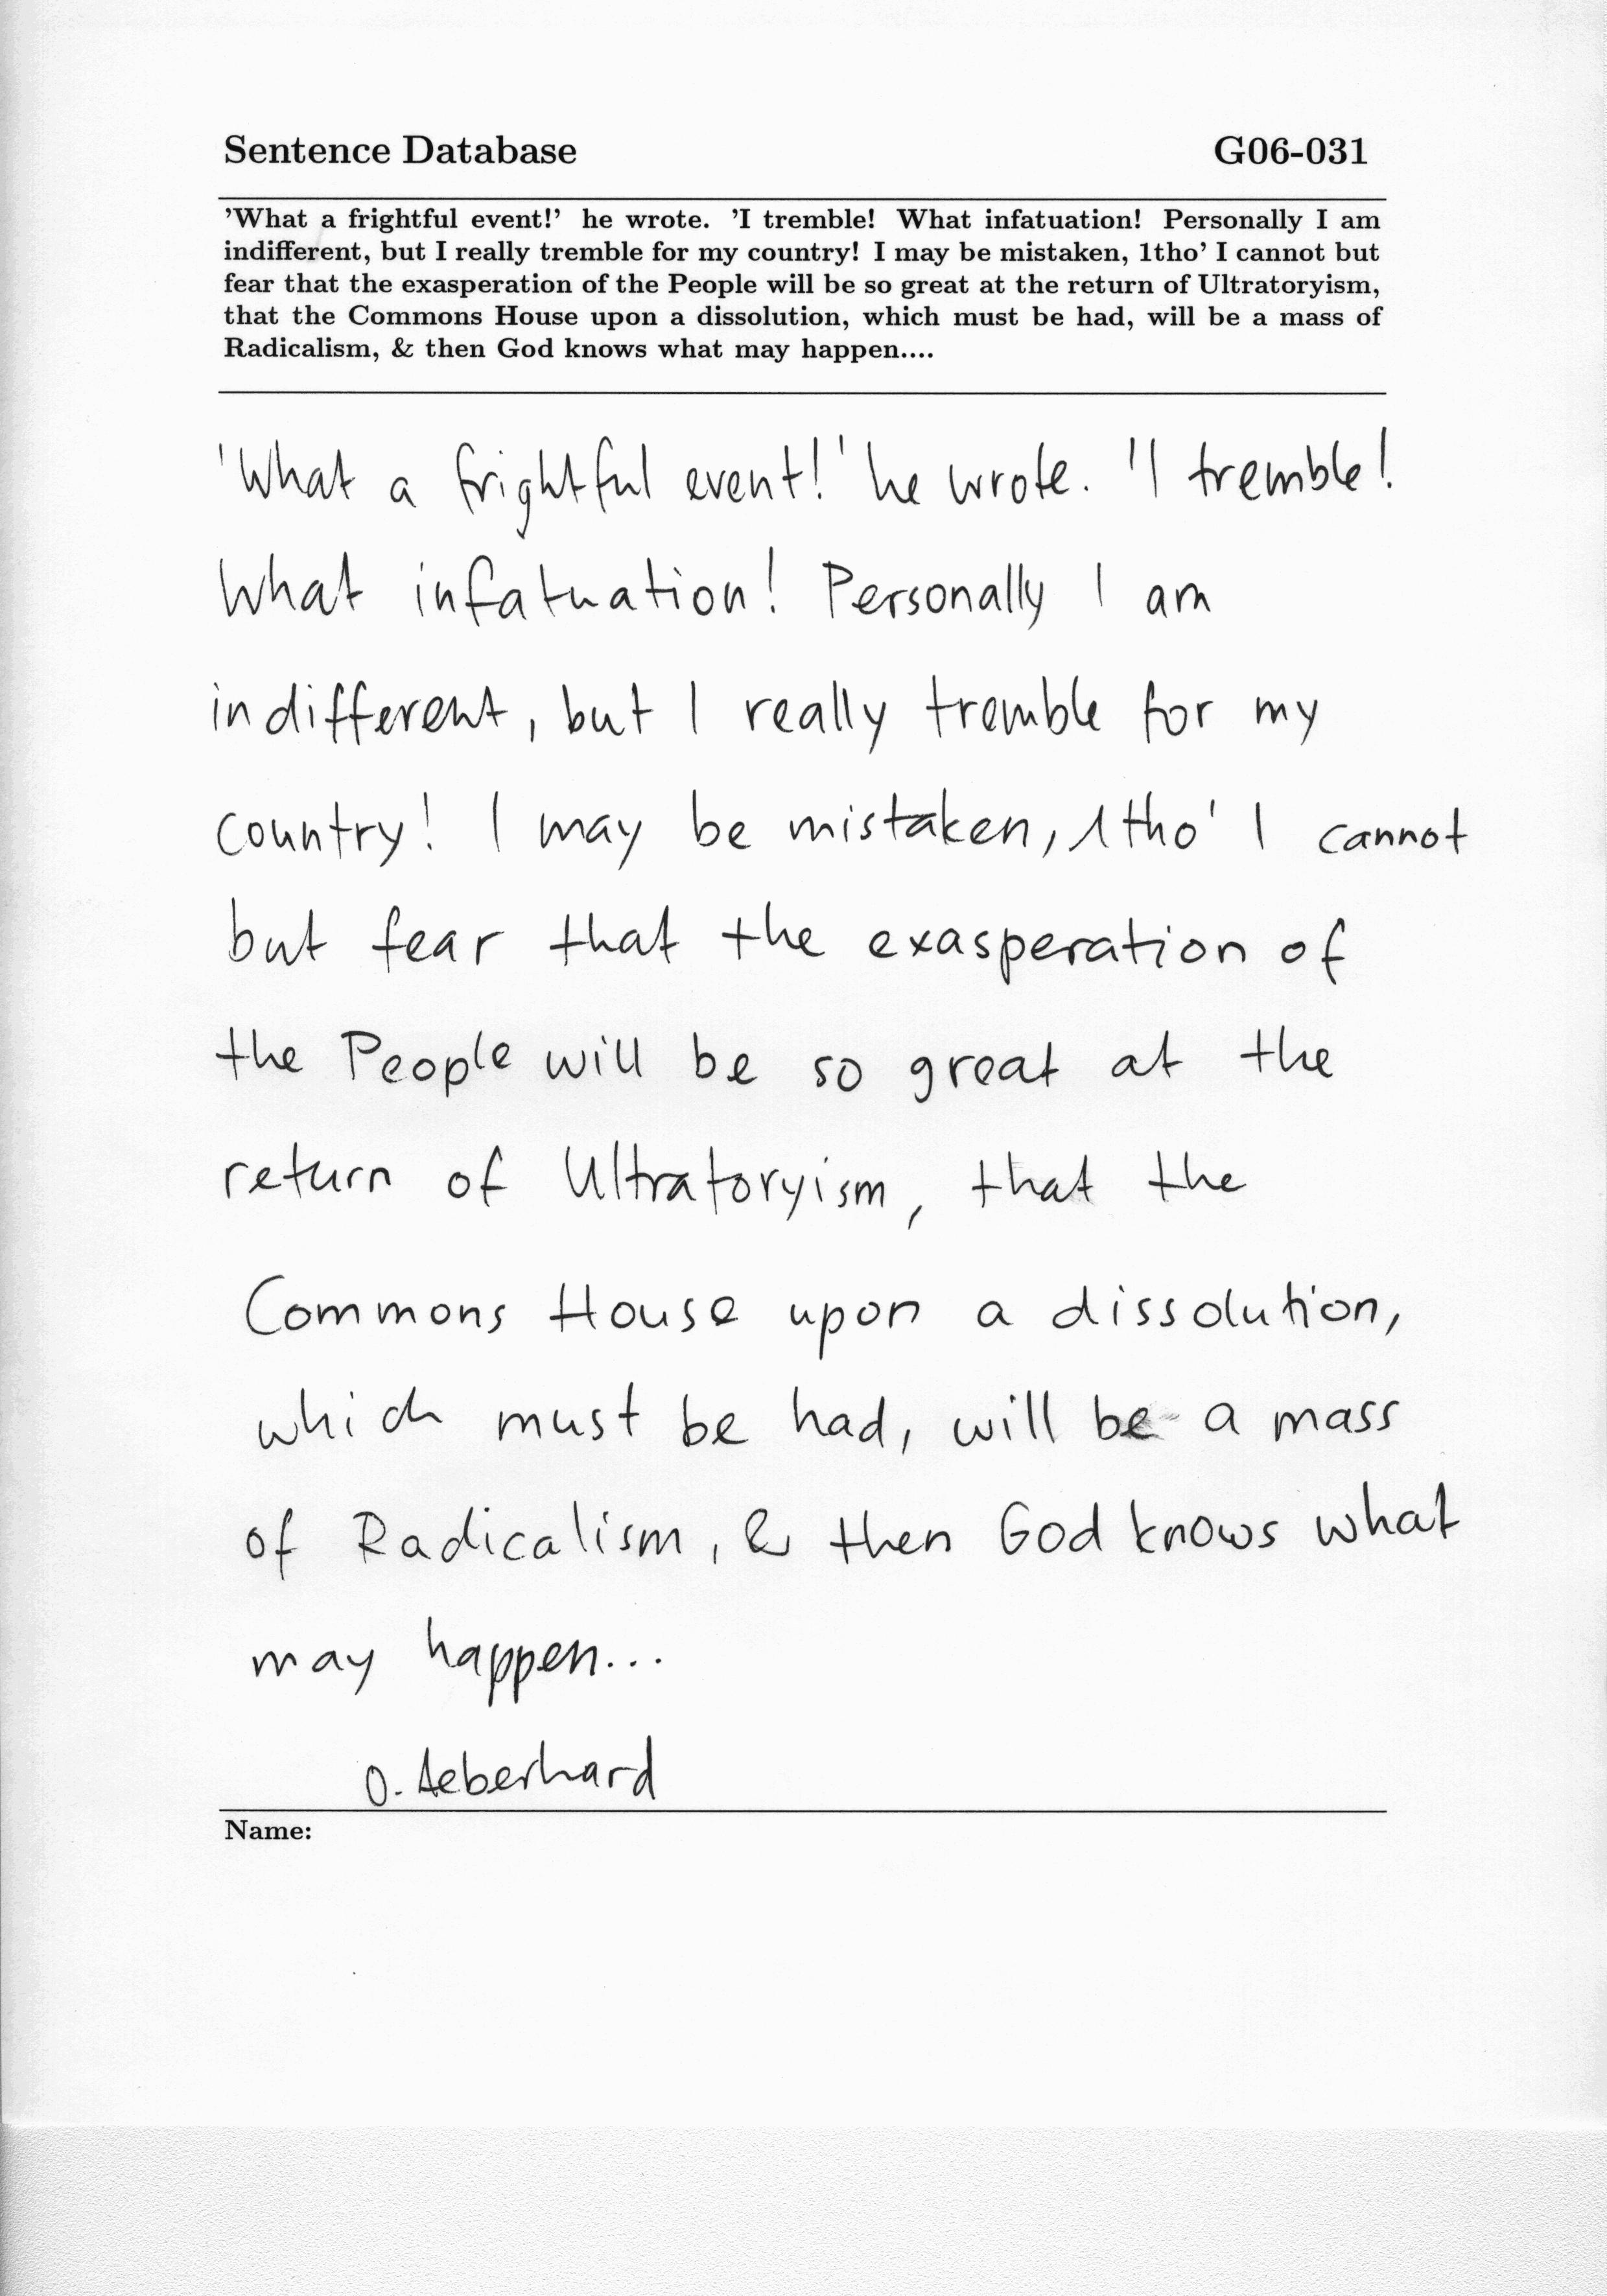 Sentence Database G06-031
’What a frightful event!’ he wrote. ’I tremble! What infatuation! Personally I am
indifferent, but I really tremble for my country! I may be mistaken, 1tho’ I cannot but
fear that the exasperation of the People will be so great at the return of Ultratoryism,
that the Commons House upon a dissolution, which must be had, will be a mass of
Radicalism, & then God knows what may happen....
'What a frightful event!' he wrote. 'I tremble!
What infatuation! Personally I am
indifferent, but I really tremble for my
country! I may be mistaken, 1tho' I cannot
but fear that the exasperation of
the People will be so great at the
return of Ultratoryism, that the
Commons House upon a dissolution,
which must be had, will be a mass
of Radicalism, & then God knows what
may happen...
O. Aeberhard
Name: